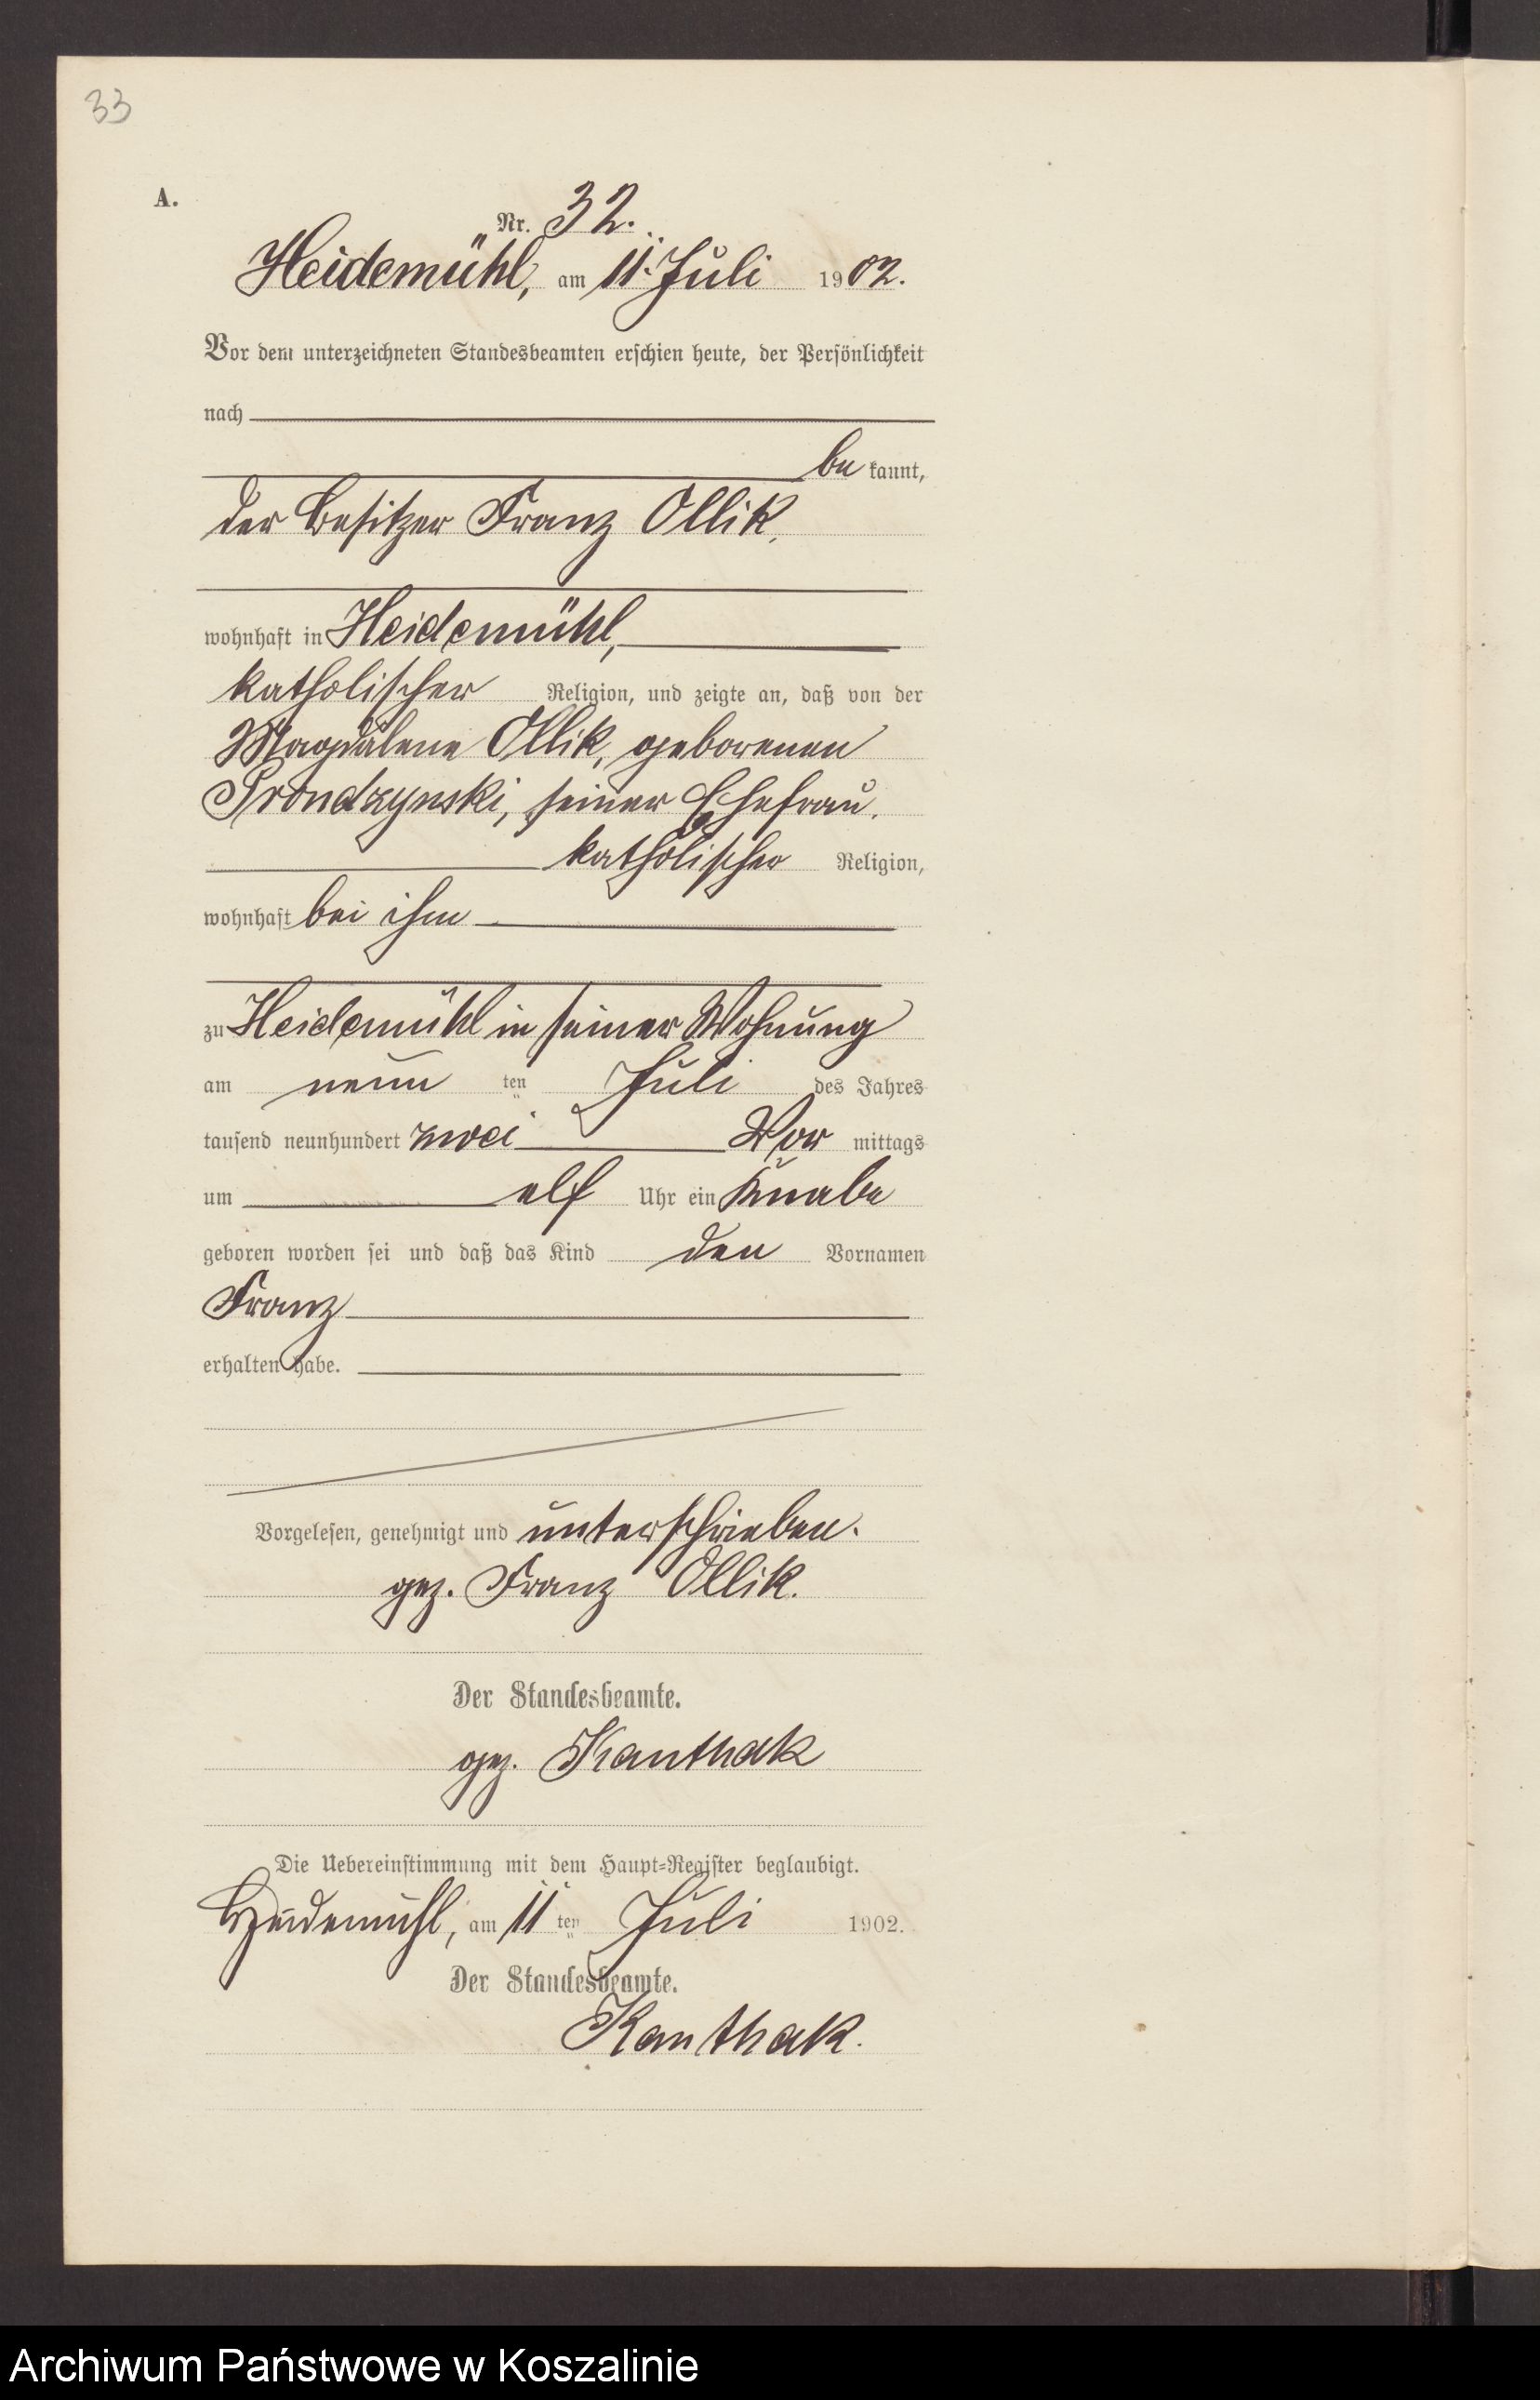 33
A.
Nr. 32.
Heidemühl, am 11. Juli 1902.
Vor dem unterzeichneten Standesbeamten erschien heute, der Persönlichkeit
nach
be kannt,
der Besitzer Franz Ollik,
wohnhaft in Heidemühl,
katholischer Religion, und zeigte an, daß von der
Magdalene Ollik, geborenen
Prondzynski, seiner Ehefrau,
katholischer Religion,
wohnhaft bei ihm
zu Heidemühl in seiner Wohnung
am neun ten Juli des Jahres
tausend neunhundert zwei Vor mittags
um elf Uhr ein Knabe
geboren worden sei und daß das Kind den Vornamen
Franz
erhalten habe.
Vorgelesen, genehmigt und unterschrieben.
gez. Franz Ollik.
Der Standesbeamte.
gez. Kanthak
Die Uebereinstimmung mit dem Haupt=Register beglaubigt.
Heidemühl, am 11 ten Juli 1902.
Der Standesbeamte.
Kanthak.
Archiwum Państwowe w Koszalinie